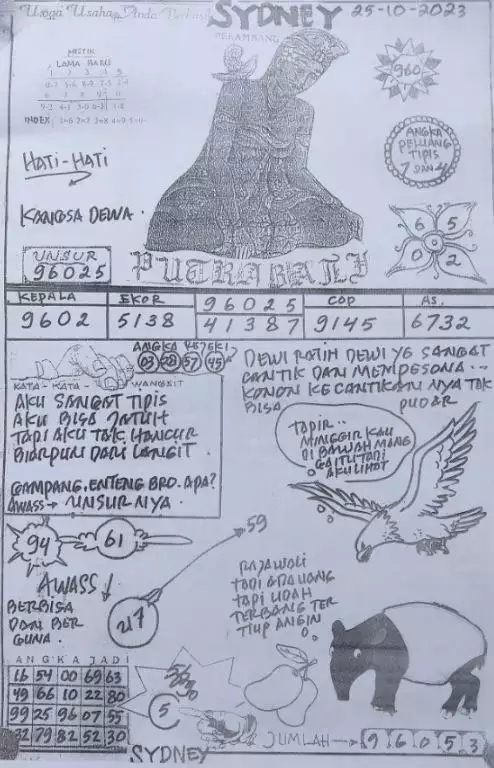 Usaha Anda
SYDNEY 25-10-2023
PELAMBANG
MISTIK
LAMA BARU
1 2 3 4 5
INDEX
960
HATI-HATI
ANGKA
PELUANG
TIPIS
7 DAN 4
KANGSA DEWA.
6 5
0 2
UNSUR
96025
PUTRA BALI
KEPALA EKOR 96025 COP AS.
9602 5138 41387 9145 6732
ANGKA REJEKI
03 28 57 45
DEWI RATIH DEWI YG SANGAT
CANTIK DAN MEMPESONA...
KONON KECANTIKAN NYA TAK
BISA PUDAR
KATA-KATA WANGSIT
AKU SANGAT TIPIS
AKU BISA JATUH
TAPI AKU TAK HANCUR
BIARPUN DARI LANGIT.
GAMPANG, ENTENG BRO. APA?
AWASS → UNSUR NYA.
TAPIR..
MINGGIR KAU
DI BAWAH MANG
GA ITU TADI
AKU LIHAT
94 61 59
AWASS
BERBISA
DAN BER
GUNA.
47
RAJAWALI
TADI ADA UANG
TAPI UDAH
TERBANG TER
TIUP ANGIN
ANGKA JADI
16 54 00 69 63
49 66 10 22 80
99 25 96 07 55
32 79 82 52 30
5
SYDNEY
JUMLAH → 96053